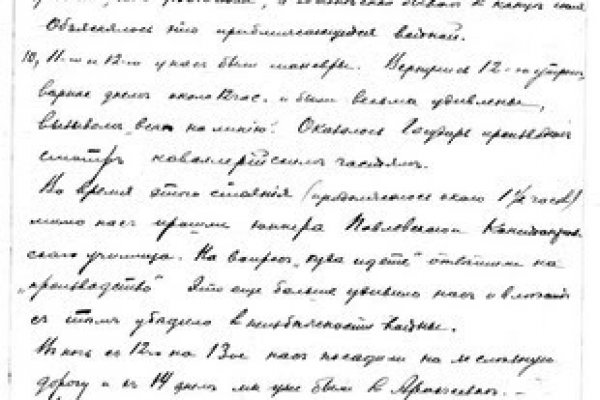 Объяснялось это приближающейся войной.
10, 11-го и 12-го у нас были маневры. Вернулись 12-го утром,
вернее днем около 12 час. и были весьма удивлены,
вызовом „всех на линию“. Оказалось Государь производил
смотр кавалерийским частям.
Во время этого стояния (продолжалось около 1½ часов)
мимо нас прошли юнкера Павловского
ского училища. На вопрос „куда идете“ ответили на
„производство“ Это еще больше удивило нас и
с тем убедило в неизбежности войны.
В ночь с 12-го на 13-ое нас посадили на железную
дорогу и 14 днем мы уже были в